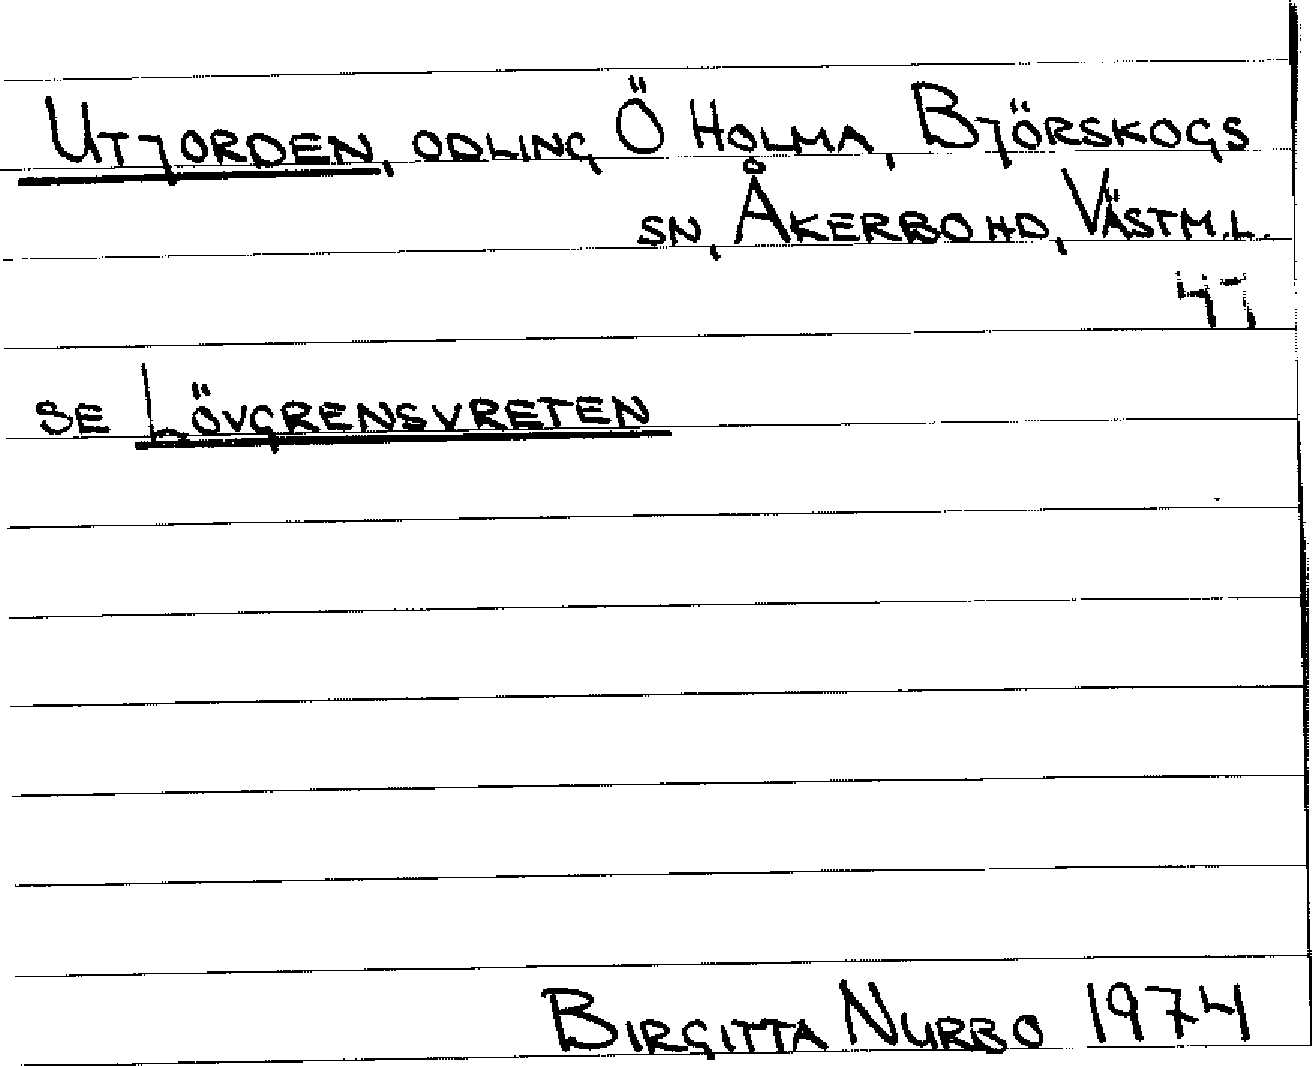 UTJORDEN, ODLING, Ö HOLMA, BJÖRSKOGS
SN, ÅKERBO HD, VÄSTM.L.
47
SE LÖVGRENSVRETEN
BIRGITTA NURBO 1974